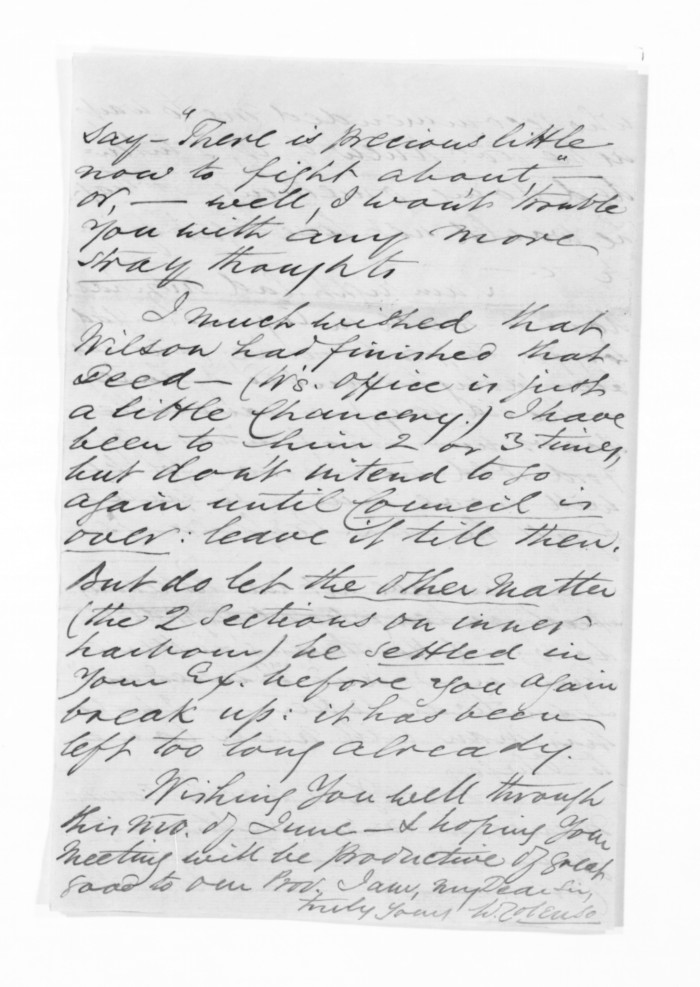 say – "There is precious little
now to fight about," –
or, – well, I won't trouble
You with any more
stray thoughts
I much wished that
Wilson had finished that
Deed – (W's. Office is just
a little Chancery.) I have
been to him 2 or 3 times,
but don't intend to go
again until Council is
over: leave it till then.
But do let the other matter
(the 2 Sections on inner
harbour) be settled in
Your Ex. before you again
break up: it has been
left too long already.
Wishing You well through
this mo. of June – & hoping Your
Meeting will be productive of great
good to our Prov. I am, My Dear Sir,
truly Yours W. Colenso